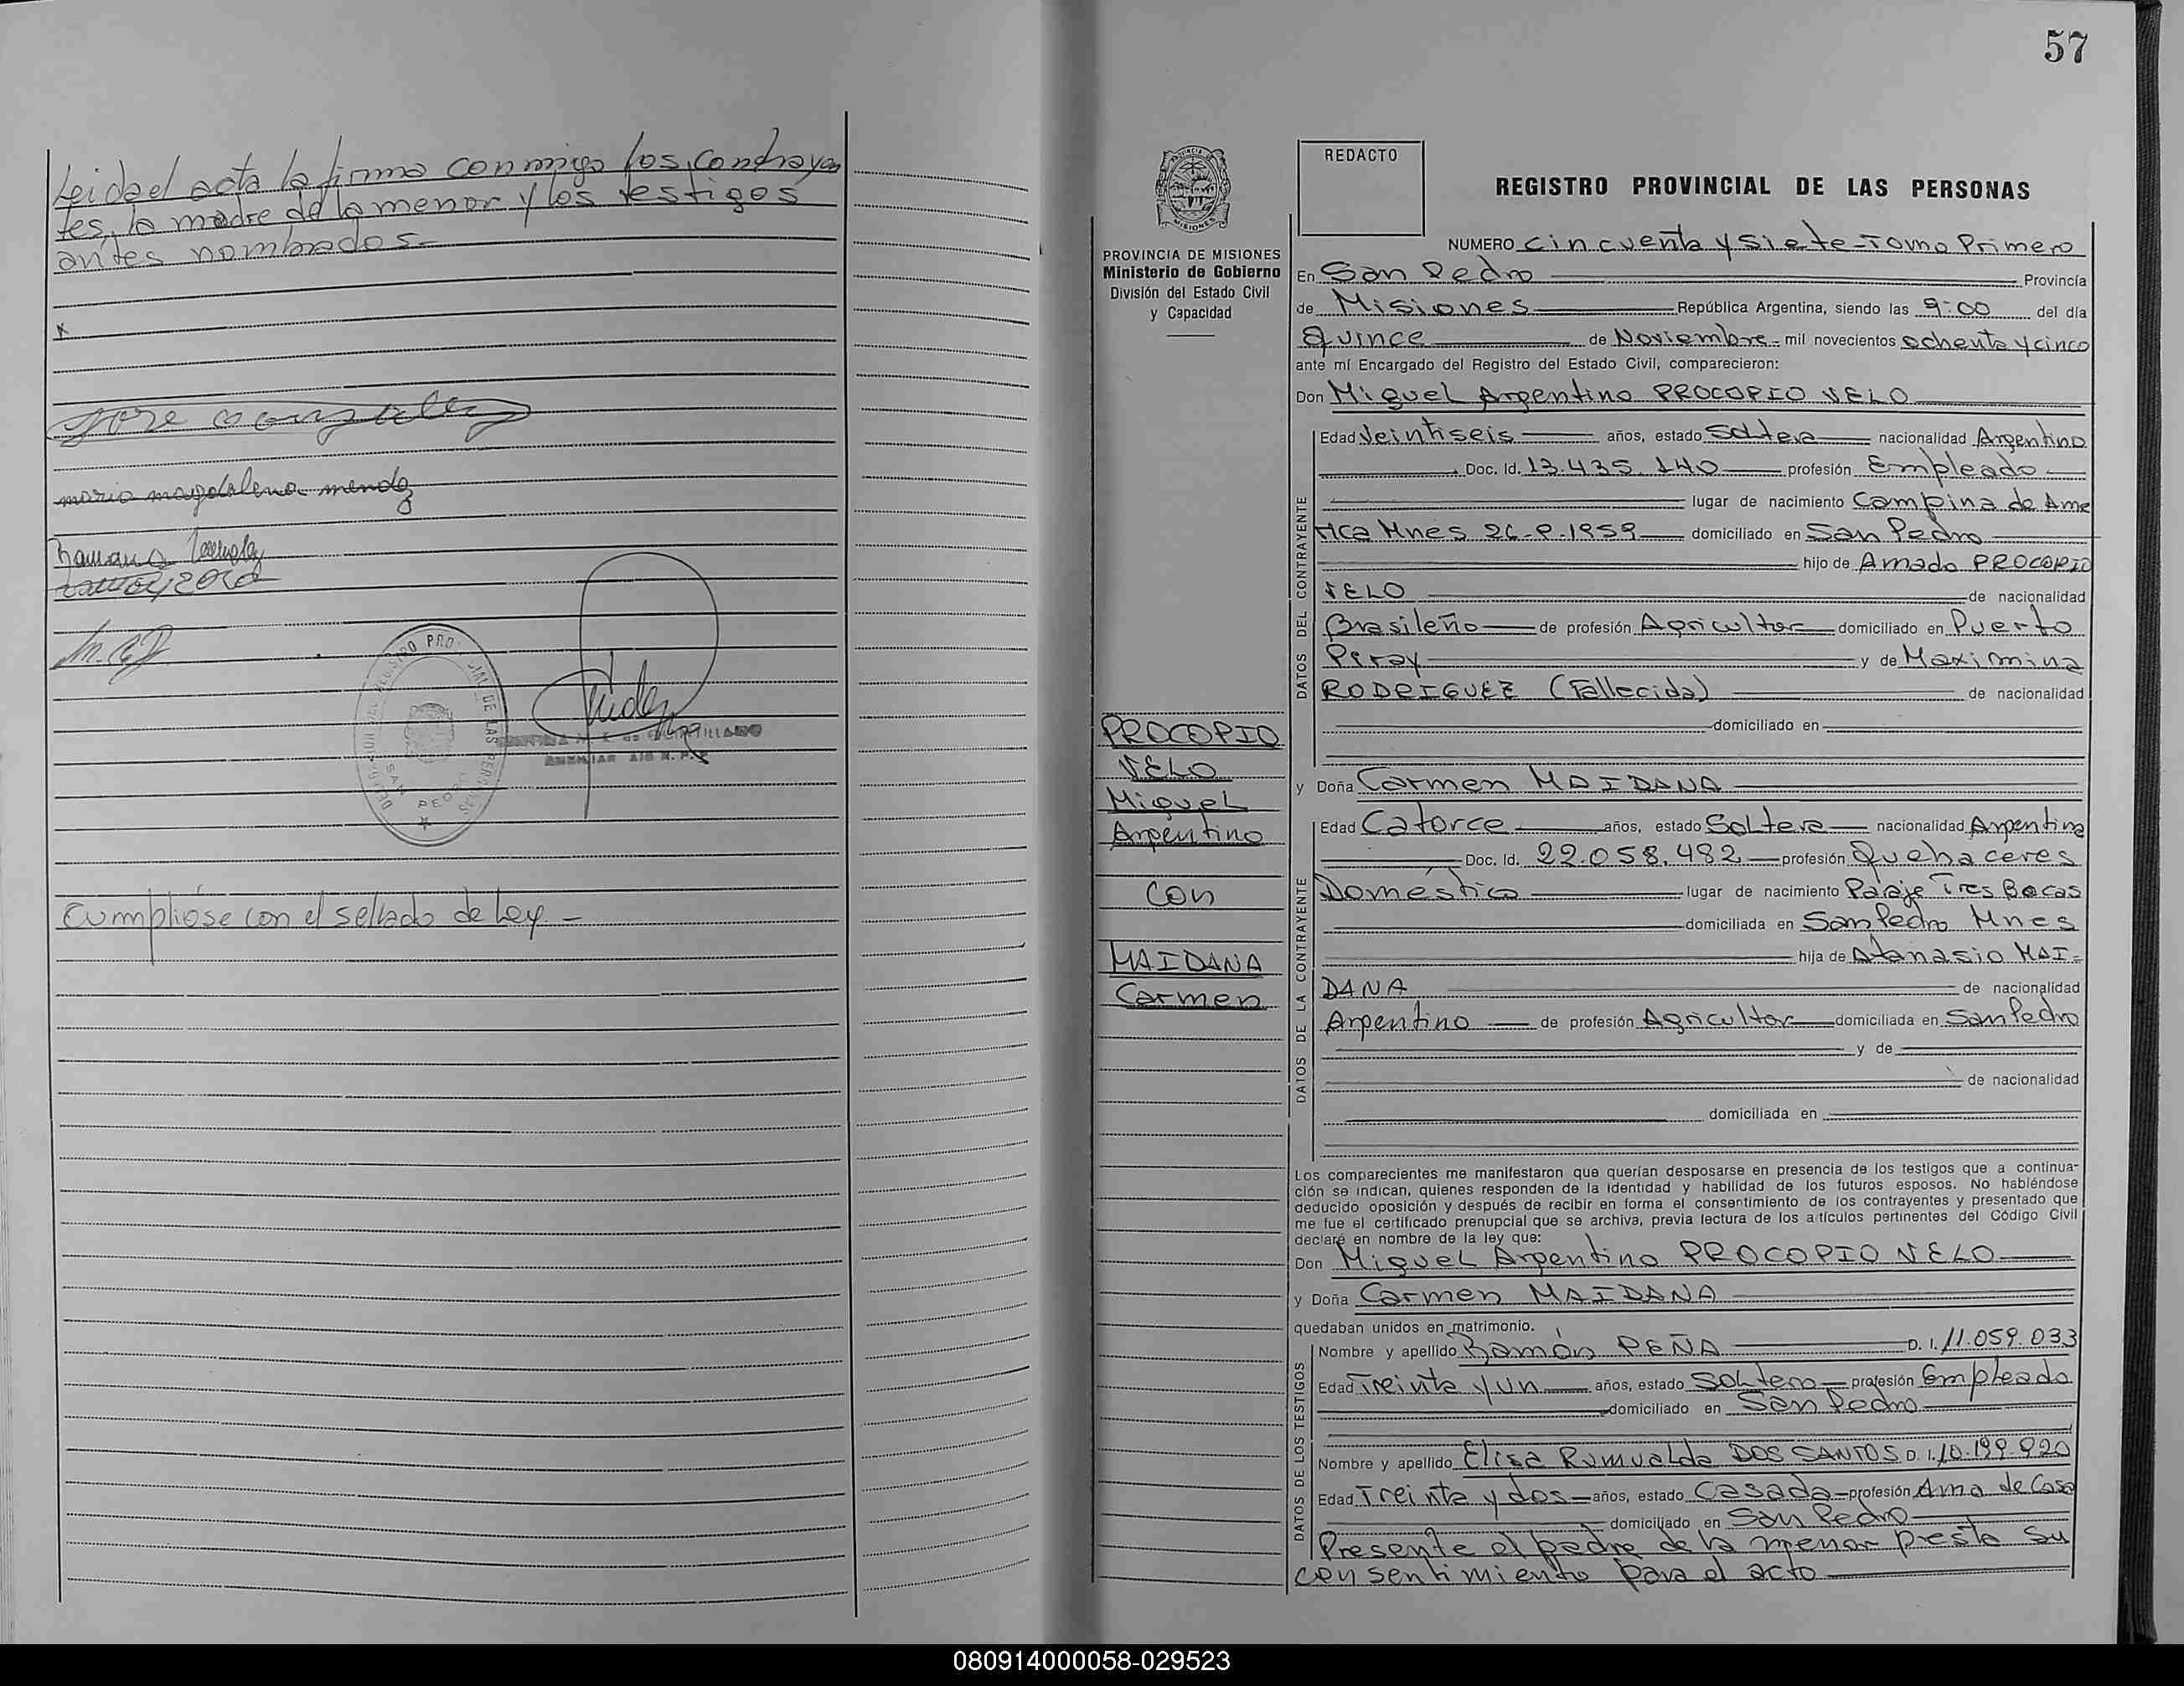 Leida el acta la firma conmigo los contrayen
tes, la madre de la menor y los testigos
antes nombrados.-
Jose Gonzalez
maria magdalena mendez
Cumpliose con el sellado de Ley.-
57
PROVINCIA DE MISIONES
Ministerio de Gobierno
División del Estado Civil
y Capacidad
PROCOPIO
VELO
Miguel
Argentino
con
MAIDANA
Carmen
REDACTO
REGISTRO PROVINCIAL DE LAS PERSONAS
NUMERO Cincuenta y Siete-Tomo Primero
En San Pedro Provincia
de Misiones República Argentina, siendo las 9:00 del día
Quince de Noviembre- mil novecientos ochenta y cinco
ante mí Encargado del Registro del Estado Civil, comparecieron:
Don Miguel Argentino PROCOPIO VELO
DATOS DEL CONTRAYENTE
Edad Veintiseis años, estado Soltero nacionalidad Argentino
Doc. Id. 13.435.140 profesión Empleado
lugar de nacimiento Campina de Ame
rica Mnes 26-9-1959 domiciliado en San Pedro
hijo de Amado PROCOPIO
VELO de nacionalidad
Brasileño de profesión Agricultor domiciliado en Puerto
Piray y de Maximina
RODRIGUEZ (Fallecida) de nacionalidad
domiciliado en
y Doña Carmen MAIDANA
DATOS DE LA CONTRAYENTE
Edad Catorce años, estado Soltera nacionalidad Argentina
Doc. Id. 22.058.482 profesión Quehaceres
Doméstico lugar de nacimiento Paraje Tres Bocas
domiciliada en San Pedro Mnes
hija de Atanasio MAI-
DANA de nacionalidad
Argentino de profesión Agricultor domiciliada en San Pedro
y de
de nacionalidad
domiciliada en
Los comparecientes me manifestaron que querían desposarse en presencia de los testigos que a continua-
ción se indican, quienes responden de la identidad y habilidad de los futuros esposos. No habiéndose
deducido oposición y después de recibir en forma el consentimiento de los contrayentes y presentado que
me fue el certificado prenupcial que se archiva, previa lectura de los artículos pertinentes del Código Civil
declaré en nombre de la ley que:
Don Miguel Argentino PROCOPIO VELO
y Doña Carmen MAIDANA
quedaban unidos en matrimonio.
DATOS DE LOS TESTIGOS
Nombre y apellido Ramón PEÑA D. I. 11.059.033
Edad Treinta y un años, estado Soltero profesión Empleado
domiciliado en San Pedro
Nombre y apellido Elisa Rumualda DOS SANTOS D. I. 10.199.920
Edad Treinta y dos años, estado Casada profesión Ama de Casa
domiciliado en San Pedro
Presente el padre de la menor presta su
consentimiento para el acto
080914000058-029523